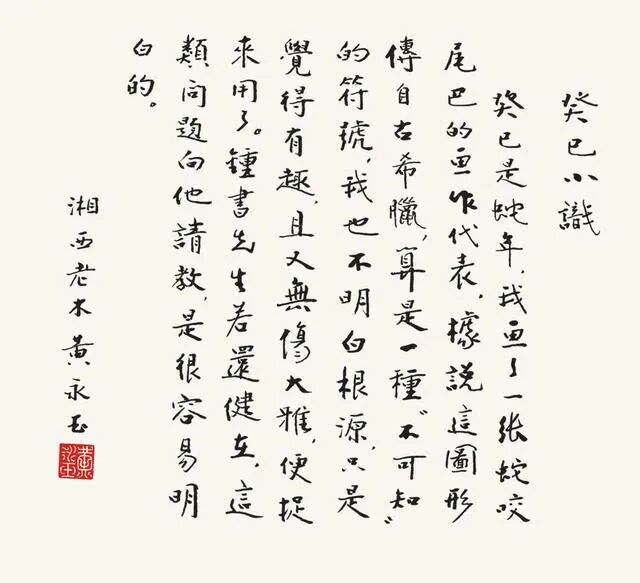 癸巳小識
癸巳是蛇年，我画了一张蛇咬
尾巴的画作代表，據説這圖形
傳自古希臘，算是一種“不可知”
的符號，我也不明白根源，只是
覺得有趣，且又無傷大雅，便捉
來用了。鍾書先生若還健在，這
類问題向他請教，是很容易明
白的。
湘西老木 黄永玉